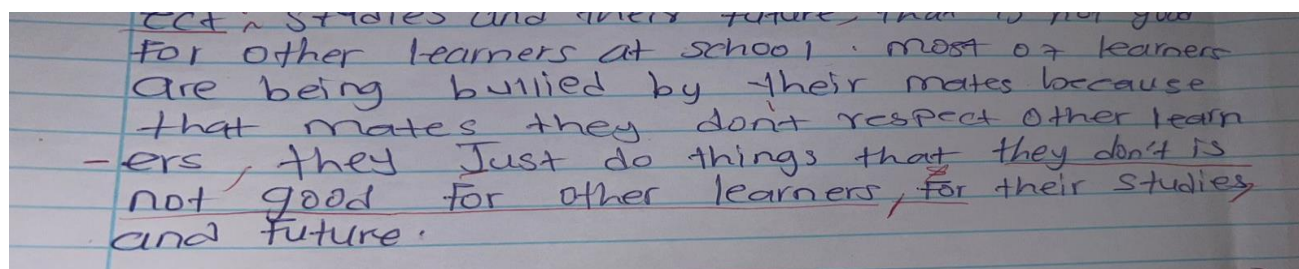 ect, studies and their future, than is not good
For other learners at school. most of learners
are being bullied by their mates because
that mates they don't respect other learn
- ers, they Just do things that they don't is
not good for other learners, for their studies,
and future.